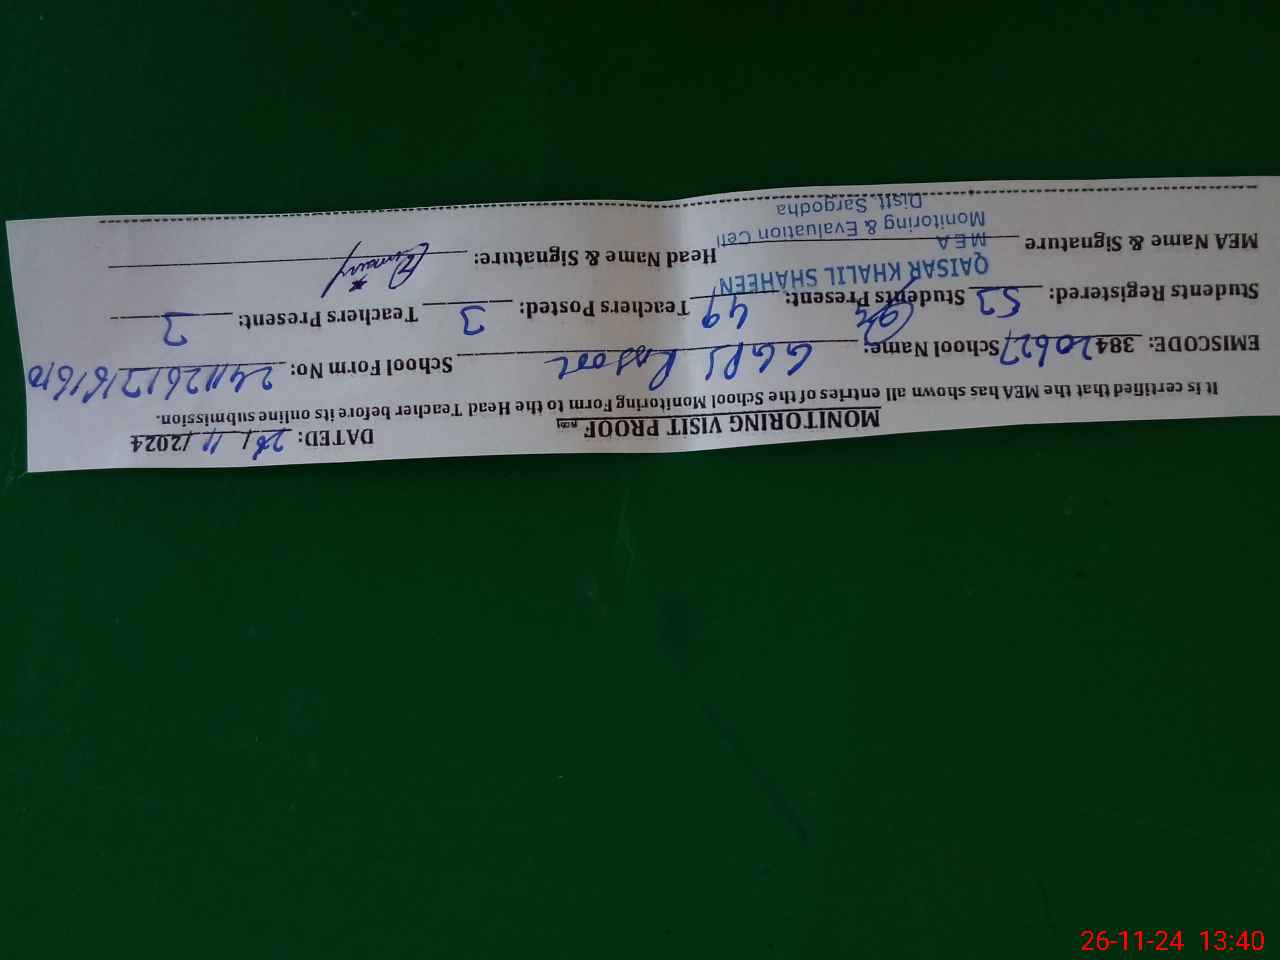 MONITORING VISIT PROOF DATED: 26/11/2024
It is certified that the MEA has shown all entries of the School Monitoring Form to the Head Teacher before its online submission.
EMISCODE: 38420627 School Name: GGPS School Form No:
Students Registered: 52 Students Present: 49 Teachers Posted: 3 Teachers Present: 3
QAISAR KHALIL SHAHEEN
MEA Name & Signature Head Name & Signature:
MEA
Monitoring & Evaluation Cell
Distt. Sargodha
26-11-24 13:40